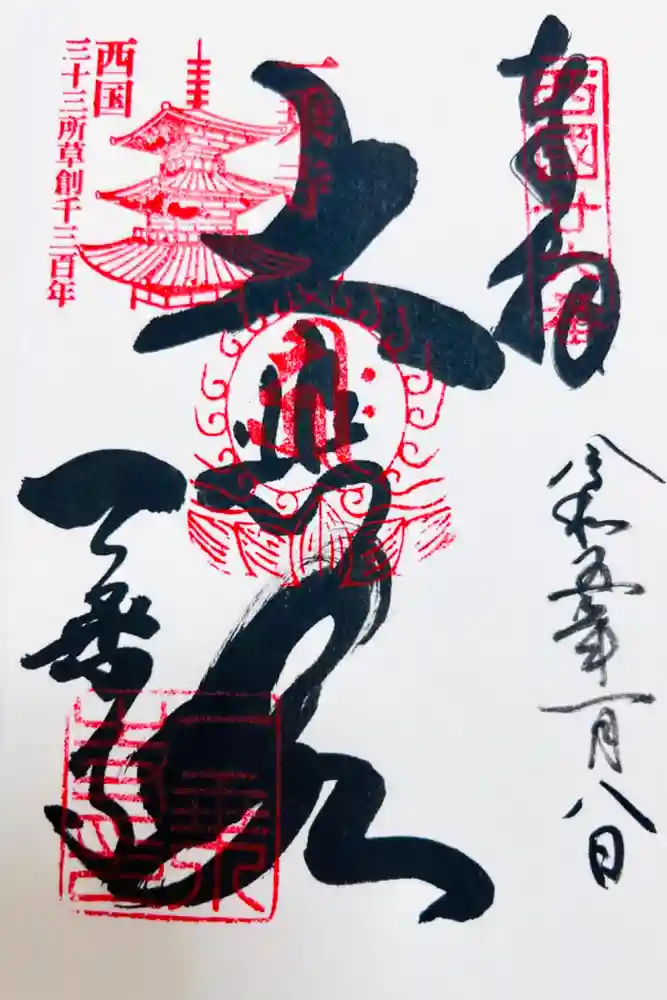 奉拝
西國廿六番
令和五年一月八日
大悲閣
一乗寺
西国
三十三所草創千三百年